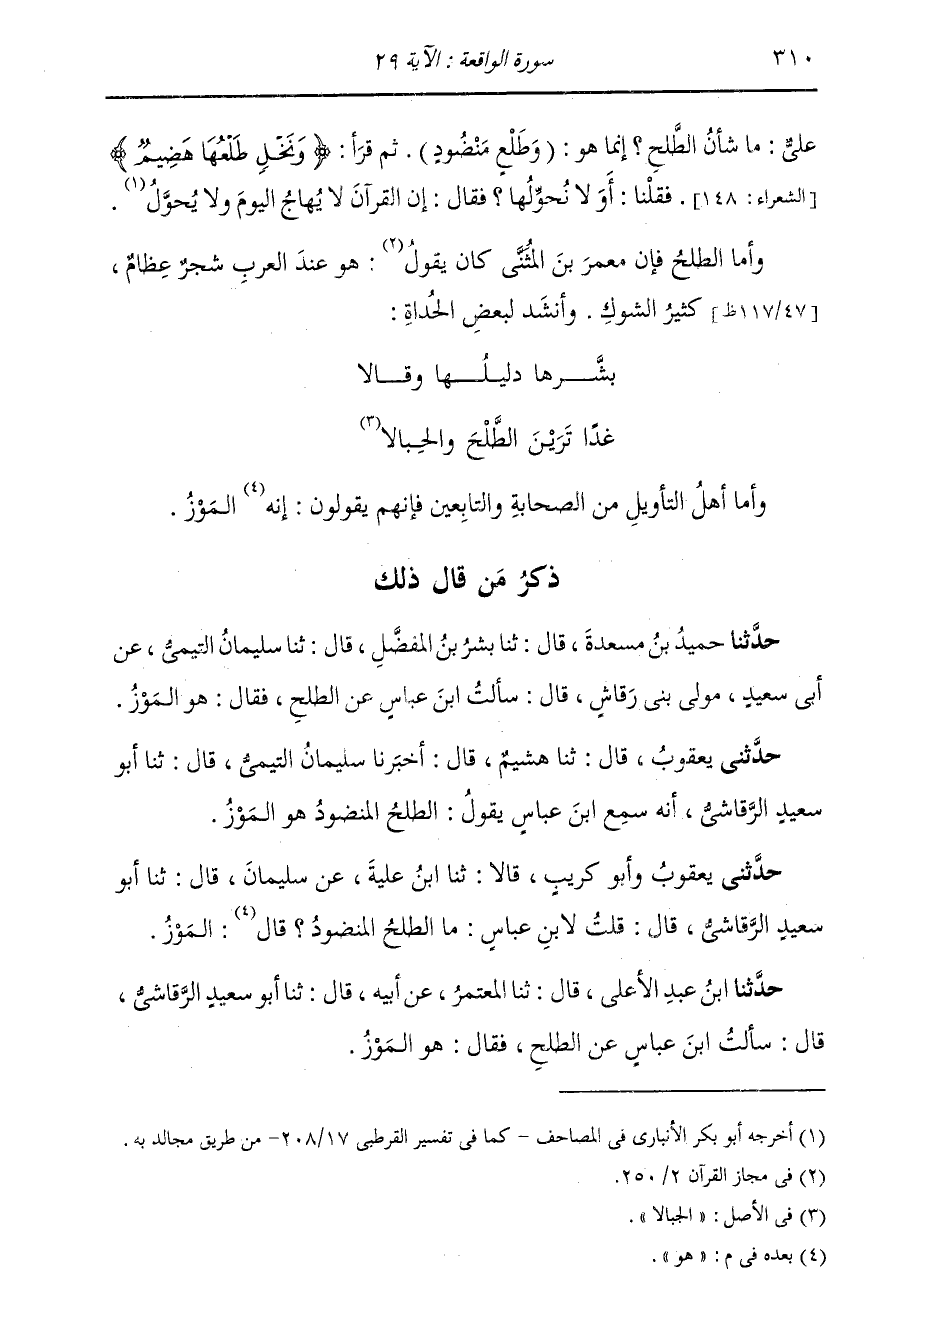 ٣١٠
سورة الواقعة : الآية ٢٩
علىٌّ : ما شأنُ الطَّلحِ ؟ إنما هو : ( وَطَلْعٍ مَنْضُودٍ ) . ثم قرَأ : ﴿ وَنَخْلٍ طَلْعُهَا هَضِيمٌ ﴾
[ الشعراء : ١٤٨ ] . فقلْنا : أَوَ لا نُحوِّلُها ؟ فقال : إن القرآنَ لا يُهاجُ اليومَ ولا يُحوَّلُ (١) .
وأما الطلحُ فإن معمرَ بنَ المُثَنَّى كان يقولُ (٢) : هو عندَ العربِ شجرٌ عِظامٌ ،
[ ١١٧/٤٧ظ ] كثيرُ الشوكِ . وأنشَد لبعضِ الحُداةِ :
بشَّــــرها دليـلُـــــها وقـــالا
غدًا تَرَيْنَ الطَّلْحَ والحِبالا (٣)
وأما أهلُ التأويلِ من الصحابةِ والتابِعين فإنهم يقولون : إنه (٤) المَوْزُ .
ذكرُ مَن قال ذلك
حدَّثنا حميدُ بنُ مسعدةَ ، قال : ثنا بشرُ بنُ المفضَّلِ ، قال : ثنا سليمانُ التيمىُّ ، عن
أبى سعيدٍ ، مولى بنى رَقاشٍ ، قال : سألتُ ابنَ عباسٍ عن الطلحِ ، فقال : هو المَوْزُ .
حدَّثنى يعقوبُ ، قال : ثنا هشيمٌ ، قال : أخبَرنا سليمانُ التيمىُّ ، قال : ثنا أبو
سعيدٍ الرَّقاشىُّ ، أنه سمِع ابنَ عباسٍ يقولُ : الطلحُ المنضودُ هو المَوْزُ .
حدَّثنى يعقوبُ وأبو كريبٍ ، قالا : ثنا ابنُ عليةَ ، عن سليمانَ ، قال : ثنا أبو
سعيدٍ الرَّقاشىُّ ، قال : قلتُ لابنِ عباسٍ : ما الطلحُ المنضودُ ؟ قال (٤) : المَوْزُ .
حدَّثنا ابنُ عبدِ الأعلى ، قال : ثنا المعتمرُ ، عن أبيه ، قال : ثنا أبو سعيدٍ الرَّقاشىُّ ،
قال : سألتُ ابنَ عباسٍ عن الطلحِ ، فقال : هو المَوْزُ .
(١) أخرجه أبو بكر الأنبارى فى المصاحف - كما فى تفسير القرطبى ٢٠٨/١٧ - من طريق مجالد به .
(٢) فى مجاز القرآن ٢/ ٢٥٠.
(٣) فى الأصل : « الجبالا » .
(٤) بعده فى م : « هو » .